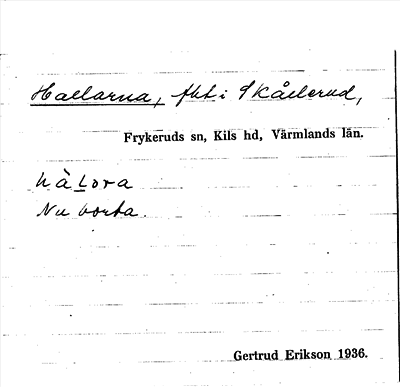 Hallarna, fht i Skållerud,
Frykeruds sn, Kils hd, Värmlands län.
Nu borta.
Gertrud Erikson 1936.